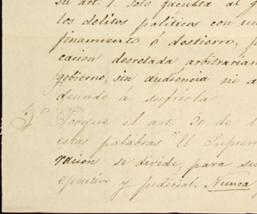 su art. 1. solo faculta al g
los delitos politicos con un
finamiento ó destierro, p
cacion decretada arbitraria
gobierno, sin audiencia ni d
á sufrirla
Porque el art. 30 de l
estas palabras "El Suprem
racion se divide, para su
ejecutivo y judicial. Nunca